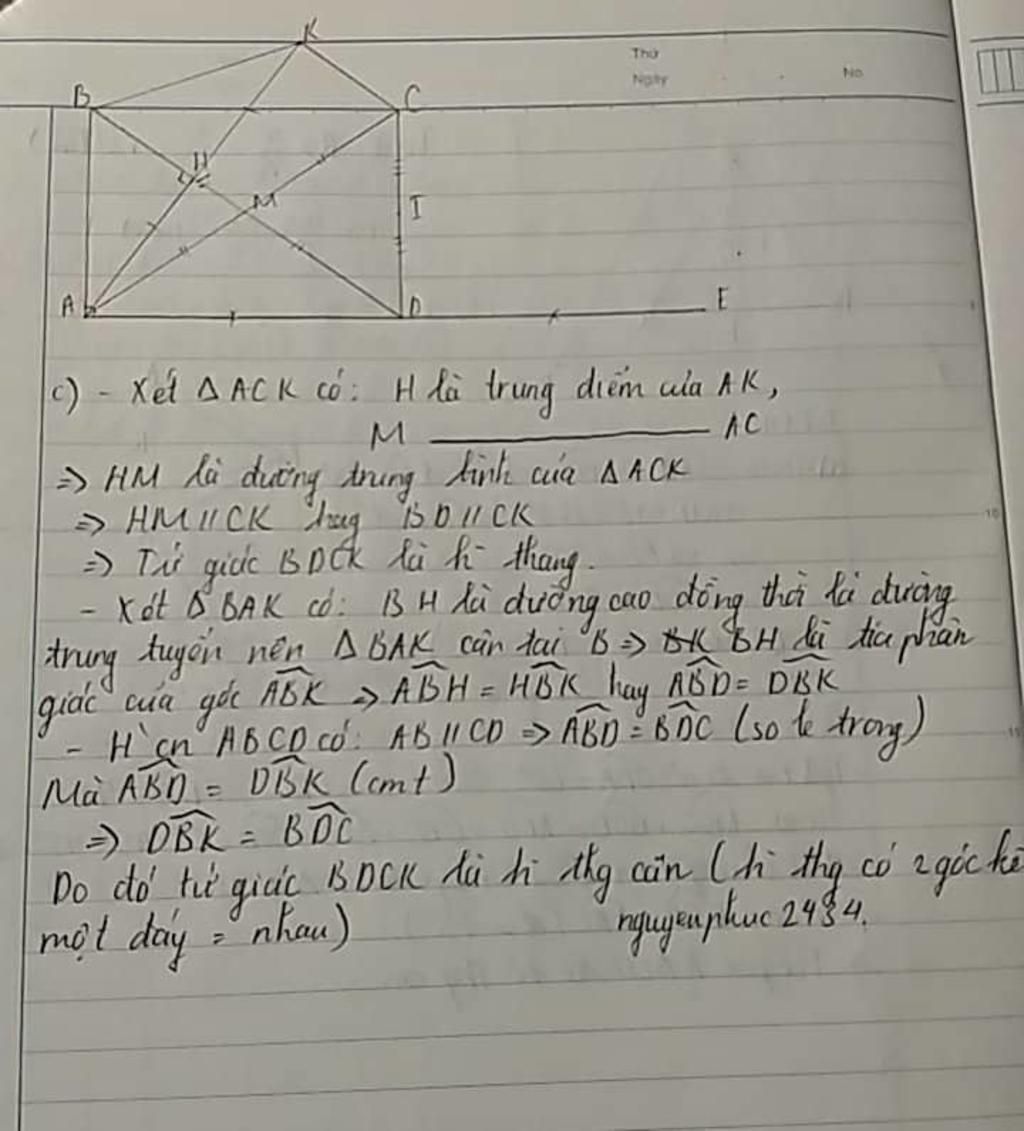 K
Thứ
Ngày
No
B
C
H
M
I
A
D
E
c) - Xét ΔACK có: H là trung điểm của AK,
M ———— AC
=> HM là đường trung bình của ΔACK
=> HM // CK hay BD // CK
=> Tứ giác BDCK là h` thang.
- Xét Δ BAK có: BH là đường cao đồng thời là đường
trung tuyến nên ΔBAK cân tại B => BH là tia phân
giác của góc ABK => ABH = HBK hay ABD = DBK
- H`cn ABCD có: AB // CD => ABD = BDC (so le trong)
Mà ABD = DBK (cmt)
=> DBK = BDC
Do đó tứ giác BDCK là h` thg cân (h` thg có 2 góc kề
một đáy = nhau)
nguyenphuc2484.
10
15